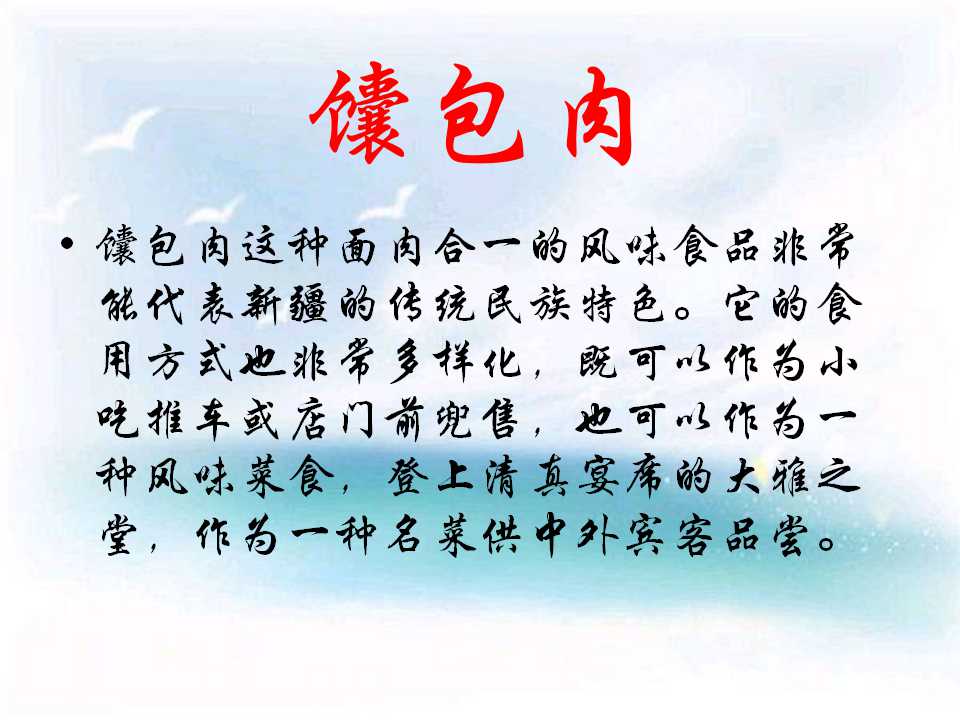 馕包肉
• 馕包肉这种面肉合一的风味食品非常
能代表新疆的传统民族特色。它的食
用方式也非常多样化，既可以作为小
吃推车或店门前兜售，也可以作为一
种风味菜食，登上清真宴席的大雅之
堂，作为一种名菜供中外宾客品尝。